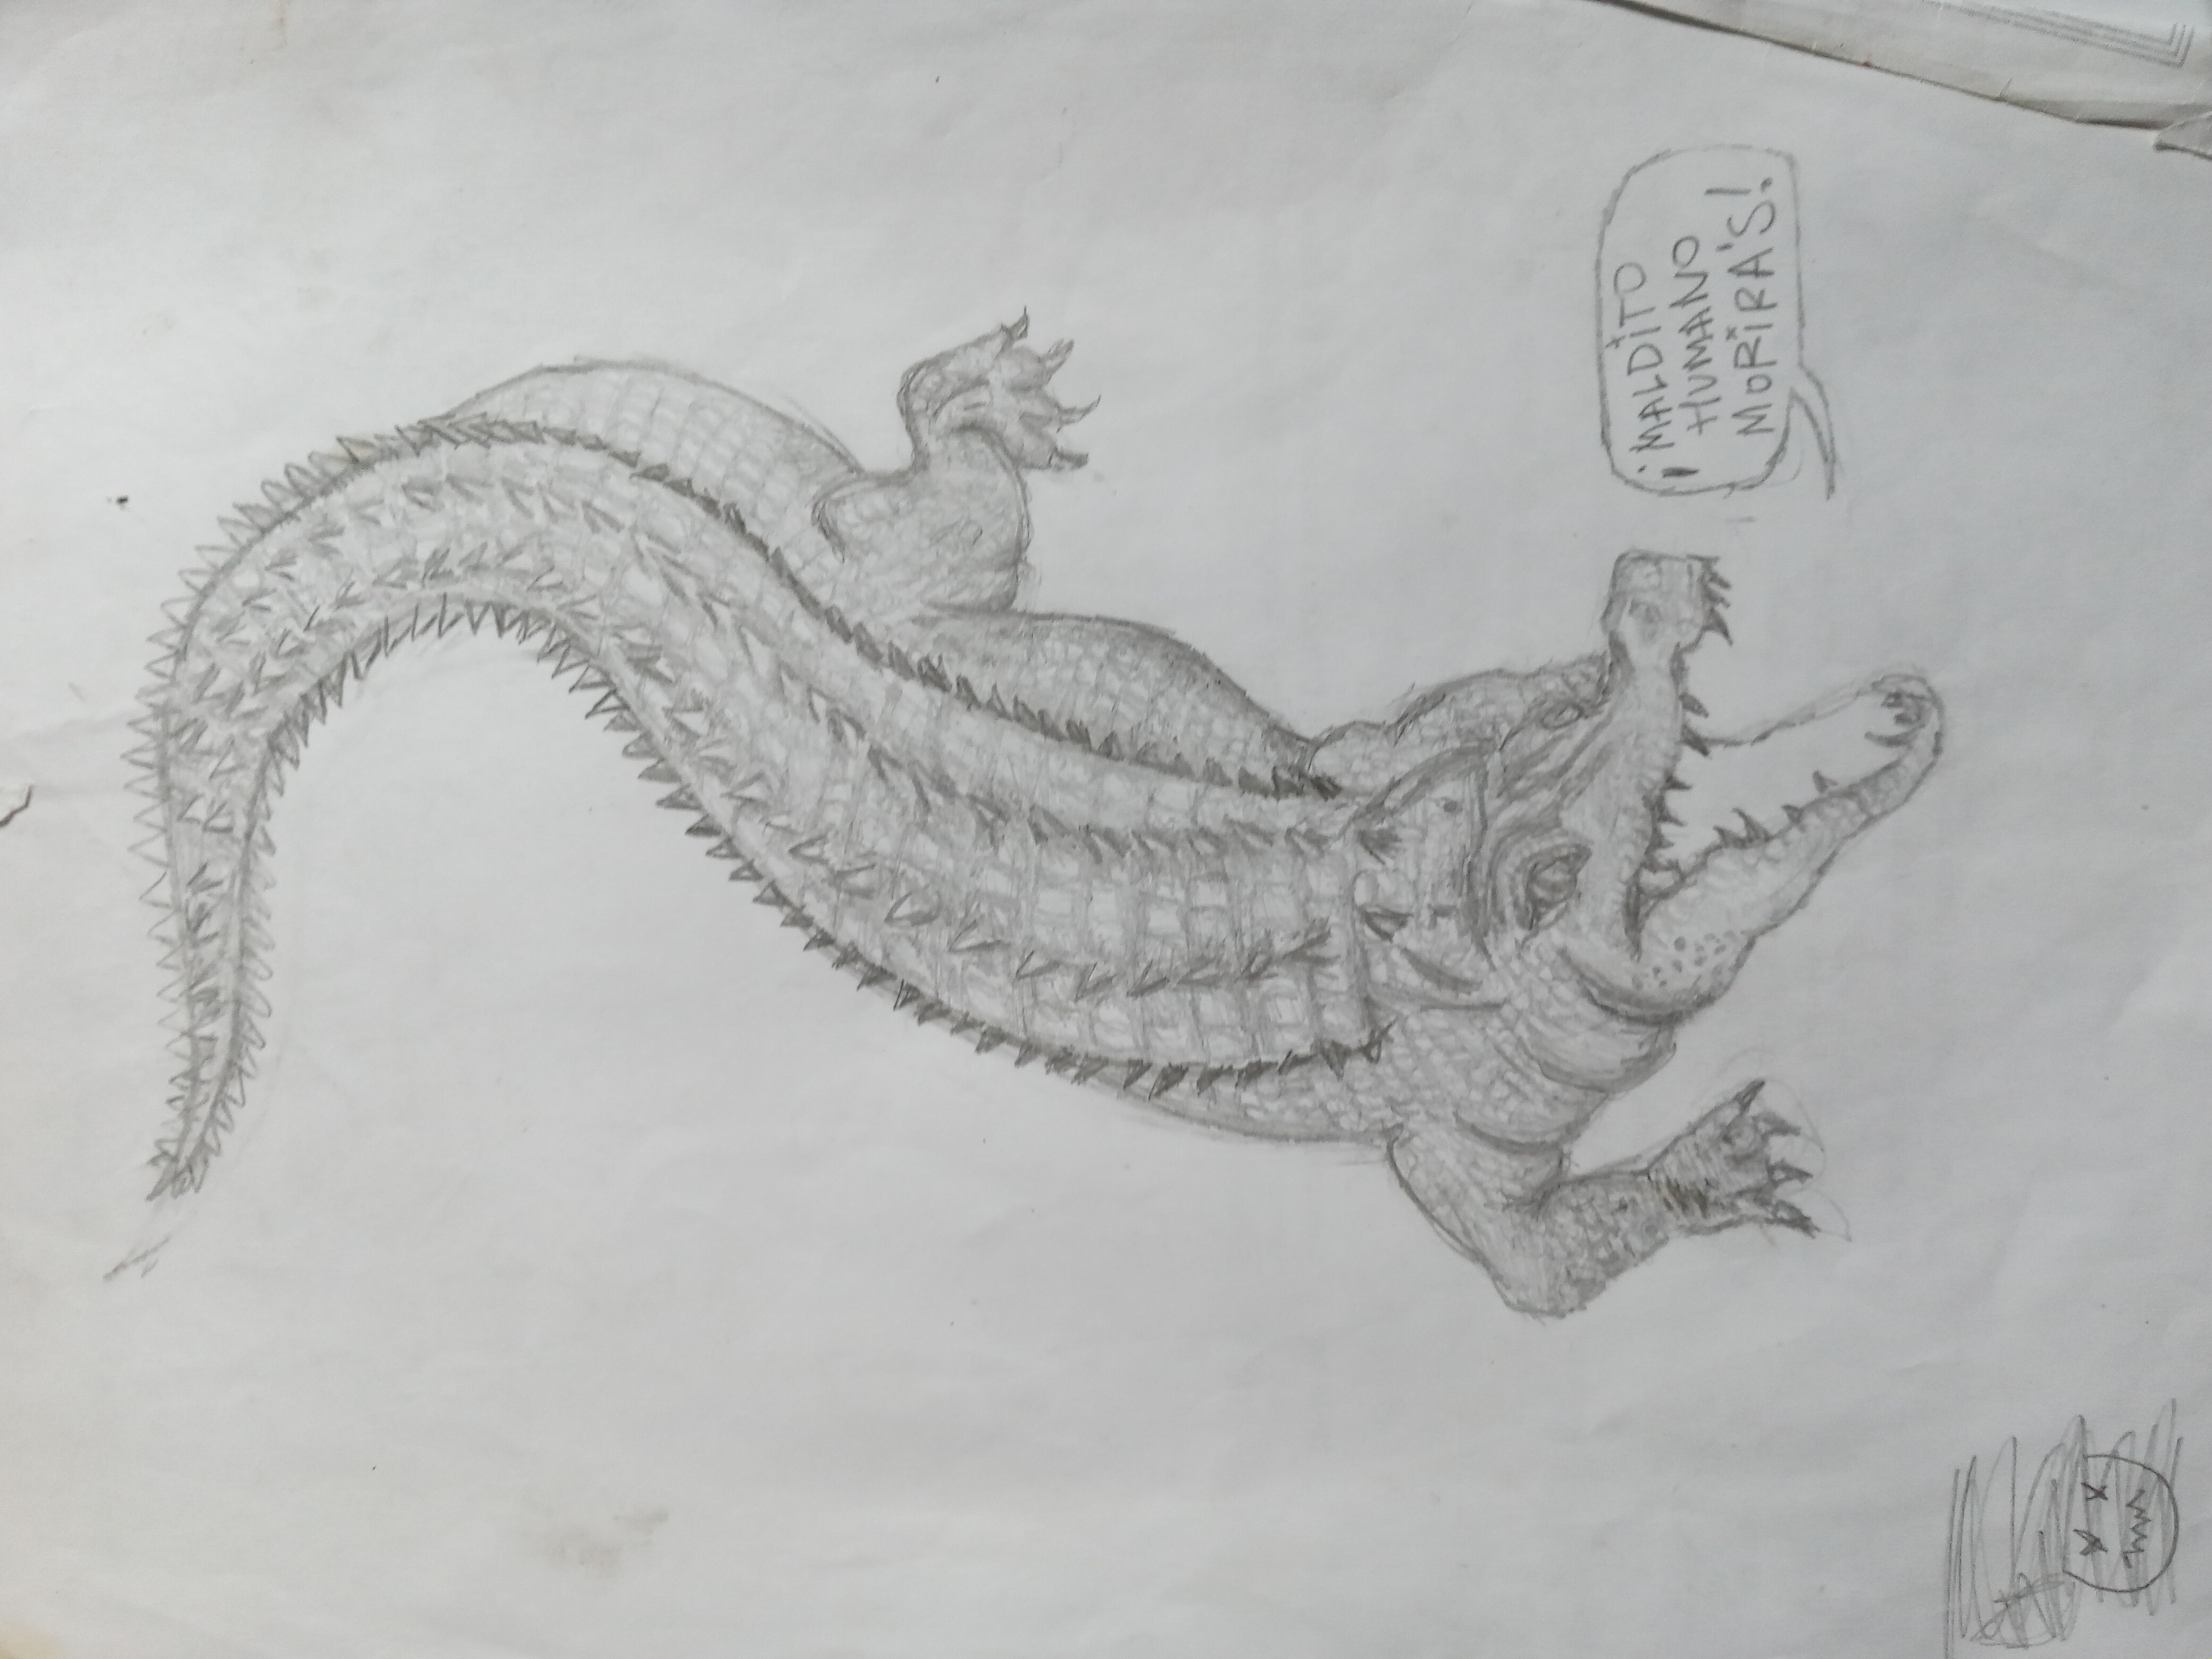 ¡MALDiTO
HUMANO
MORiRA'S!